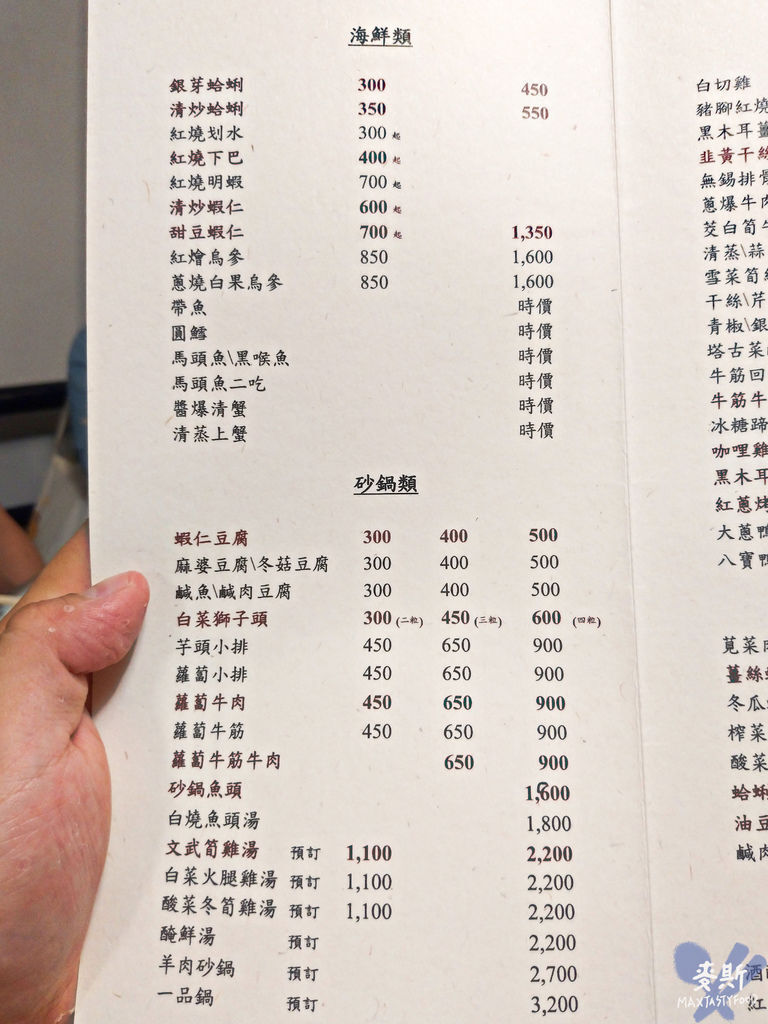 海鮮類
銀芽蛤蜊 300 450
清炒蛤蜊 350 550
紅燒划水 300 起
紅燒下巴 400 起
紅燒明蝦 700 起
清炒蝦仁 600 起
甜豆蝦仁 700 起 1,350
紅燴烏參 850 1,600
蔥燒白果烏參 850 1,600
帶魚 時價
圓鱈 時價
馬頭魚\黑喉魚 時價
馬頭魚二吃 時價
醬爆清蟹 時價
清蒸上蟹 時價
砂鍋類
蝦仁豆腐 300 400 500
麻婆豆腐\冬菇豆腐 300 400 500
鹹魚\鹹肉豆腐 300 400 500
白菜獅子頭 300 (二粒) 450 (三粒) 600 (四粒)
芋頭小排 450 650 900
蘿蔔小排 450 650 900
蘿蔔牛肉 450 650 900
蘿蔔牛筋 450 650 900
蘿蔔牛筋牛肉 650 900
砂鍋魚頭 1,600
白燒魚頭湯 1,800
文武筍雞湯 預訂 1,100 2,200
白菜火腿雞湯 預訂 1,100 2,200
酸菜冬筍雞湯 預訂 1,100 2,200
醃鮮湯 預訂 2,200
羊肉砂鍋 預訂 2,700
一品鍋 預訂 3,200
白切雞
豬腳紅燒
黑木耳薑
韭黃干絲
無錫排骨
蔥爆牛肉
茭白筍牛
清蒸\蒜
雪菜筍絲
干絲\芹
青椒\銀
塔古菜
牛筋回
牛筋牛
冰糖蹄
咖哩雞
黑木耳
紅蔥烤
大蔥鴨
八寶鴨
莧菜肉
薑絲蛤
冬瓜
榨菜
酸菜
蛤蜊
油豆
鹹肉
酒
紅
麥斯
MAXTASTYFOOD